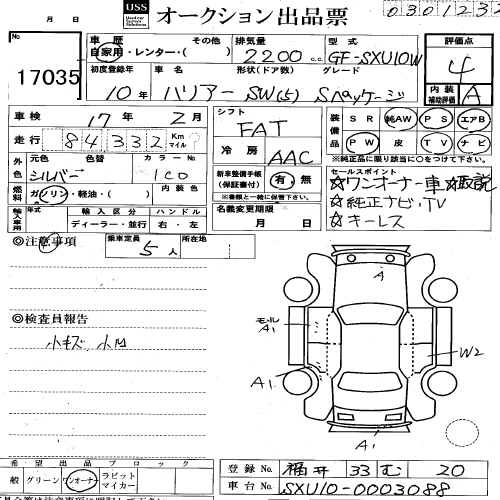 USS オークション出品票
月 日
0301232
17035
車歴 その他
自家用・レンタカー・( )
排気量
2200 c.c
型式
GF-SXU10W
評価点
4
初度登録年
10年
車名
ハリアー
形状(ドア数)
SW(5)
グレード
Sパッケージ
内装
補助評価
A
車検 17年 2月
走行 84332 Km マイル
シフト
FAT
冷房
AAC
装備品
SR 純AW PS エアB
PW 皮 TV ナビ
※純正品に限り該当に○をつけて下さい。
外色
元色 色替 カラーNo
シルバー 1C0
燃料
ガソリン・軽油・( )
内装色
新車整備手帳
(保証書付) 有・無
※書類と一緒に保管して下さい。
セールスポイント
☆ワンオーナー車☆取説
☆純正ナビ・TV
☆キーレス
輸入車用
年式 輸入区分 ハンドル
ディーラー・並行 右・左
名義変更期限
月 日
◎注意事項
乗車定員 5人
所在地
◎検査員報告
小キズ 小凹
A
モル A1
A1
W2
A1
希望出品ブロック
般 グリーン ワンオーナー ラビットマイカー
登録No. 福井 33 む 20
車台No. SXU10-0003088